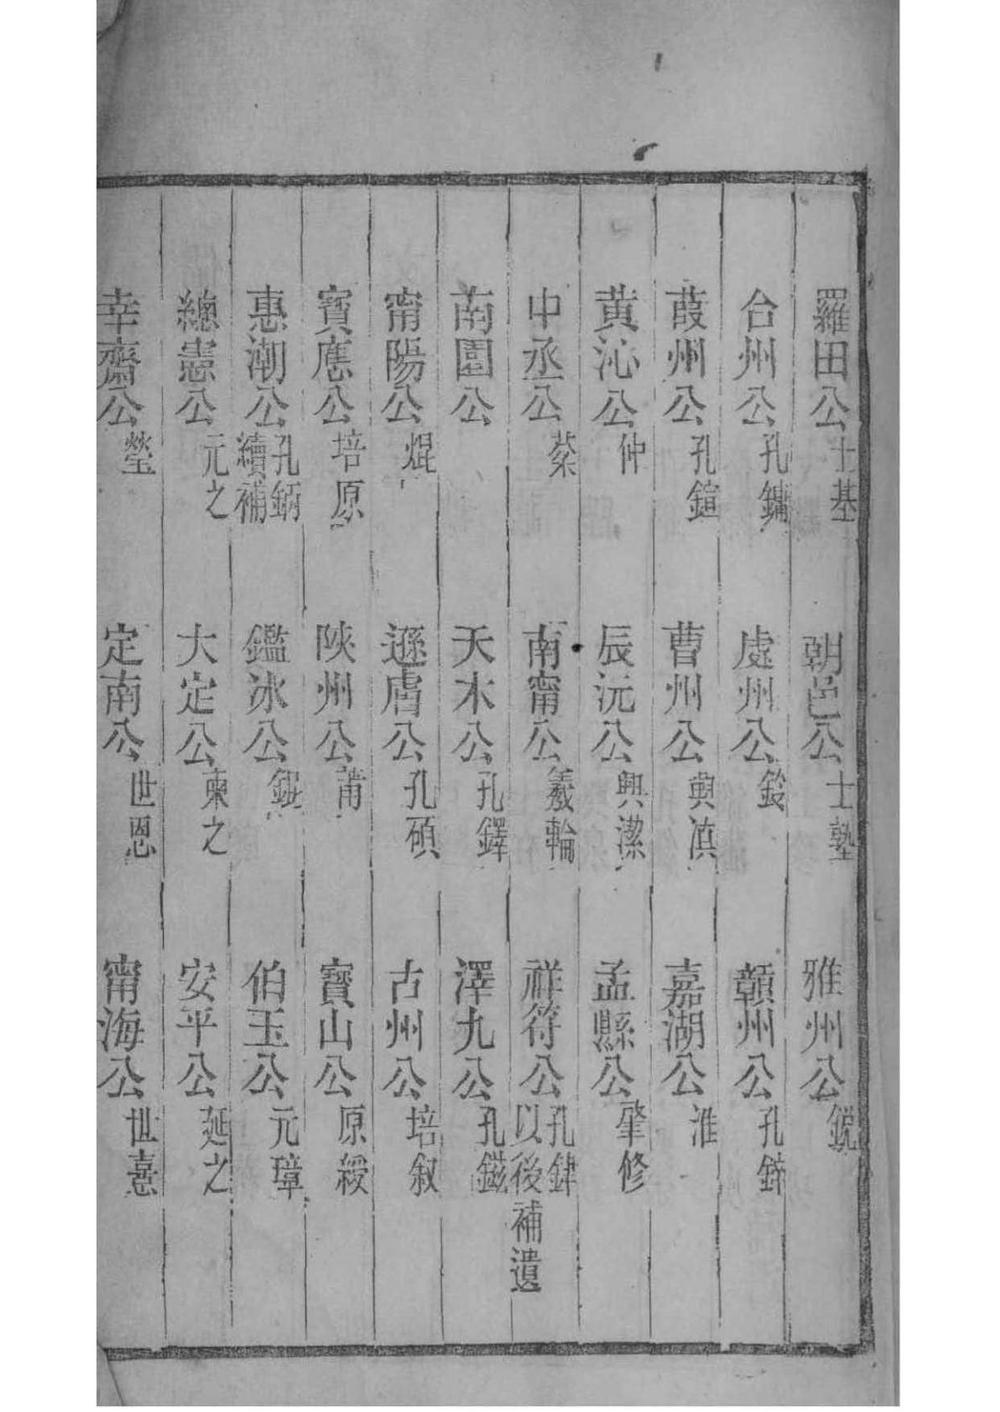 羅田公 士基 朝邑公 士塾 雅州公 銳
台州公 孔鏞 處州公 錂 贛州公 孔鋅
葭州公 孔鍹 曹州公 興滇 嘉湖公 淮
黃沁公 仲 辰沅公 興潔 孟縣公 肇修
中丞公 棻 南甯公 羲輪 祥符公 孔銉 以後補遺
南園公 天木公 孔鐸 澤九公 孔鎡
甯陽公 焜 遜膚公 孔碩 古州公 培敘
寶應公 培原 陜州公 莆 寶山公 原綬
惠潮公 孔鈵 續補 鑑冰公 伯玉公 元璋
總憲公 元之 大定公 東之 安平公 延之
幸齋公 瑩 定南公 世恩 甯海公 世憙